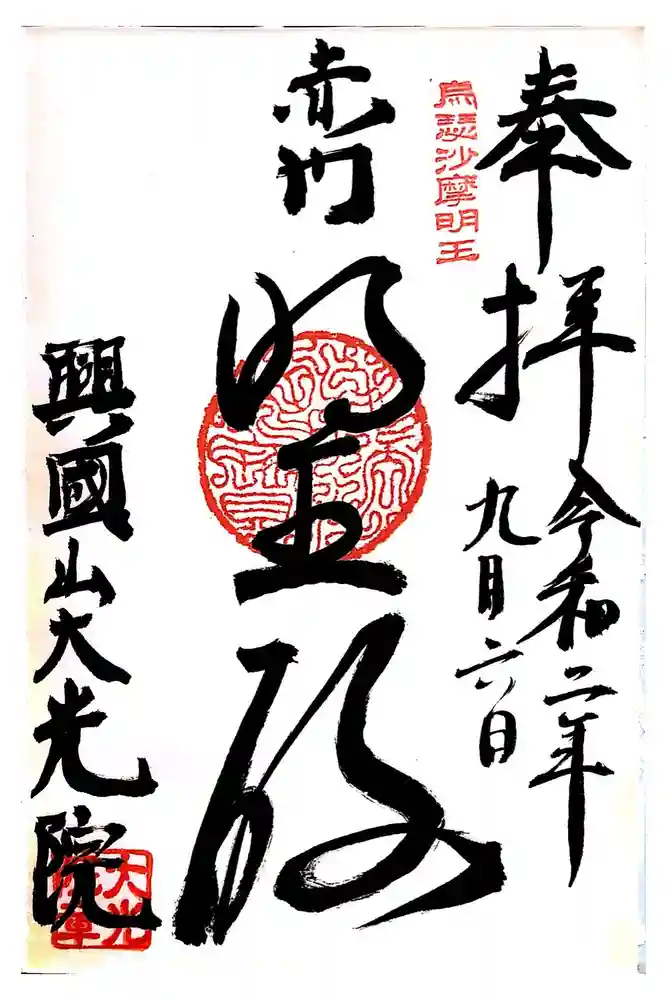 奉拝
令和二年
九月六日
烏瑟沙摩明王
赤門
明王殿
興國山大光院
大光